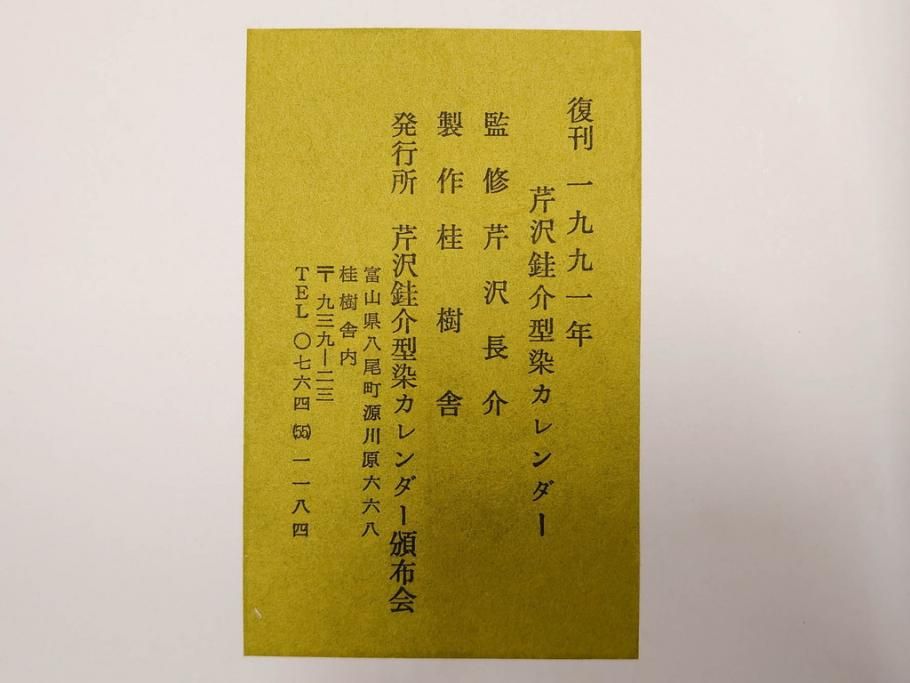 復刊 一九九一年
芹沢銈介型染カレンダー
監修 芹沢長介
製作 桂樹舎
発行所 芹沢銈介型染カレンダー頒布会
富山県八尾町源川原六六八
桂樹舎内
〒九三九―二三
TEL〇七六四(55)一一八四